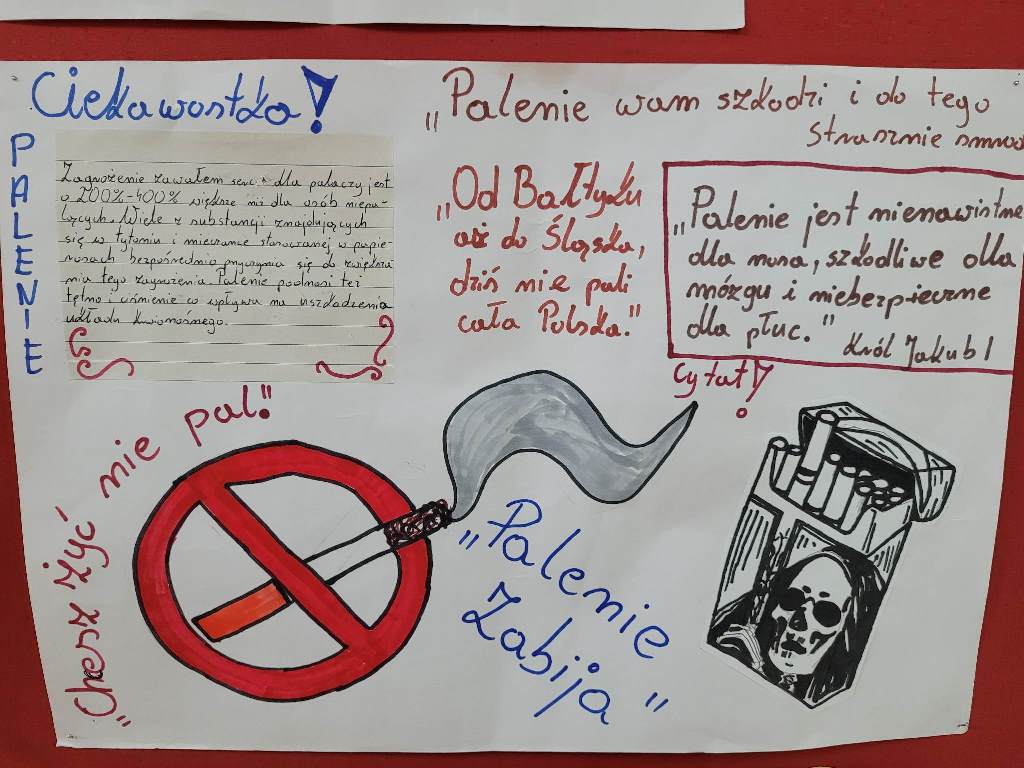 Ciekawostka!
PALENIE
Zagrożenie zawałem serca dla palaczy jest
o 200%-400% większe niż dla osób niepa-
lących. Wiele z substancji znajdujących
się w tytoniu i mieszance stosowanej w papie-
rosach bezpośrednio przyczynia się do zwiększe
nia tego zagrożenia. Palenie podnosi też
tętno i ciśnienie co wpływa na uszkodzenia
układu krwionośnego.
„Palenie wam szkodzi i do tego
strasznie smrod
„Od Bałtyku
aż do Śląska,
dziś nie pali
cała Polska."
„Palenie jest nienawistne
dla nosa, szkodliwe dla
mózgu i niebezpieczne
dla płuc."
Król Jakub I
Cytat!
„Chcesz żyć nie pal!"
„Palenie
Zabija"